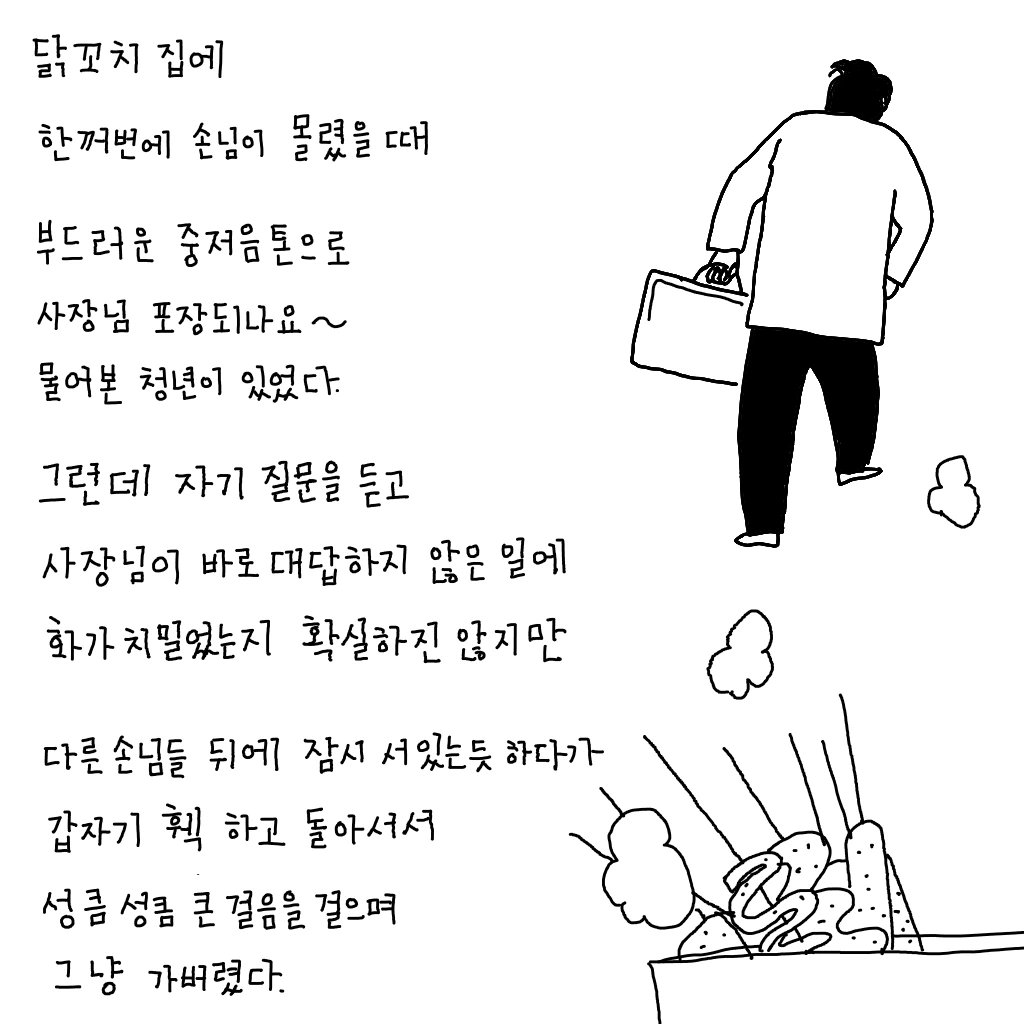 닭꼬치 집에
한꺼번에 손님이 몰렸을 때
부드러운 중저음톤으로
사장님 포장되나요~
물어본 청년이 있었다.
그런데 자기 질문을 듣고
사장님이 바로 대답하지 않은 일에
화가 치밀었는지 확실하진 않지만
다른 손님들 뒤에 잠시 서있는듯 하다가
갑자기 휅 하고 돌아서셔
성큼 성큼 큰 걸음을 걸으며
그냥 가버렸다.